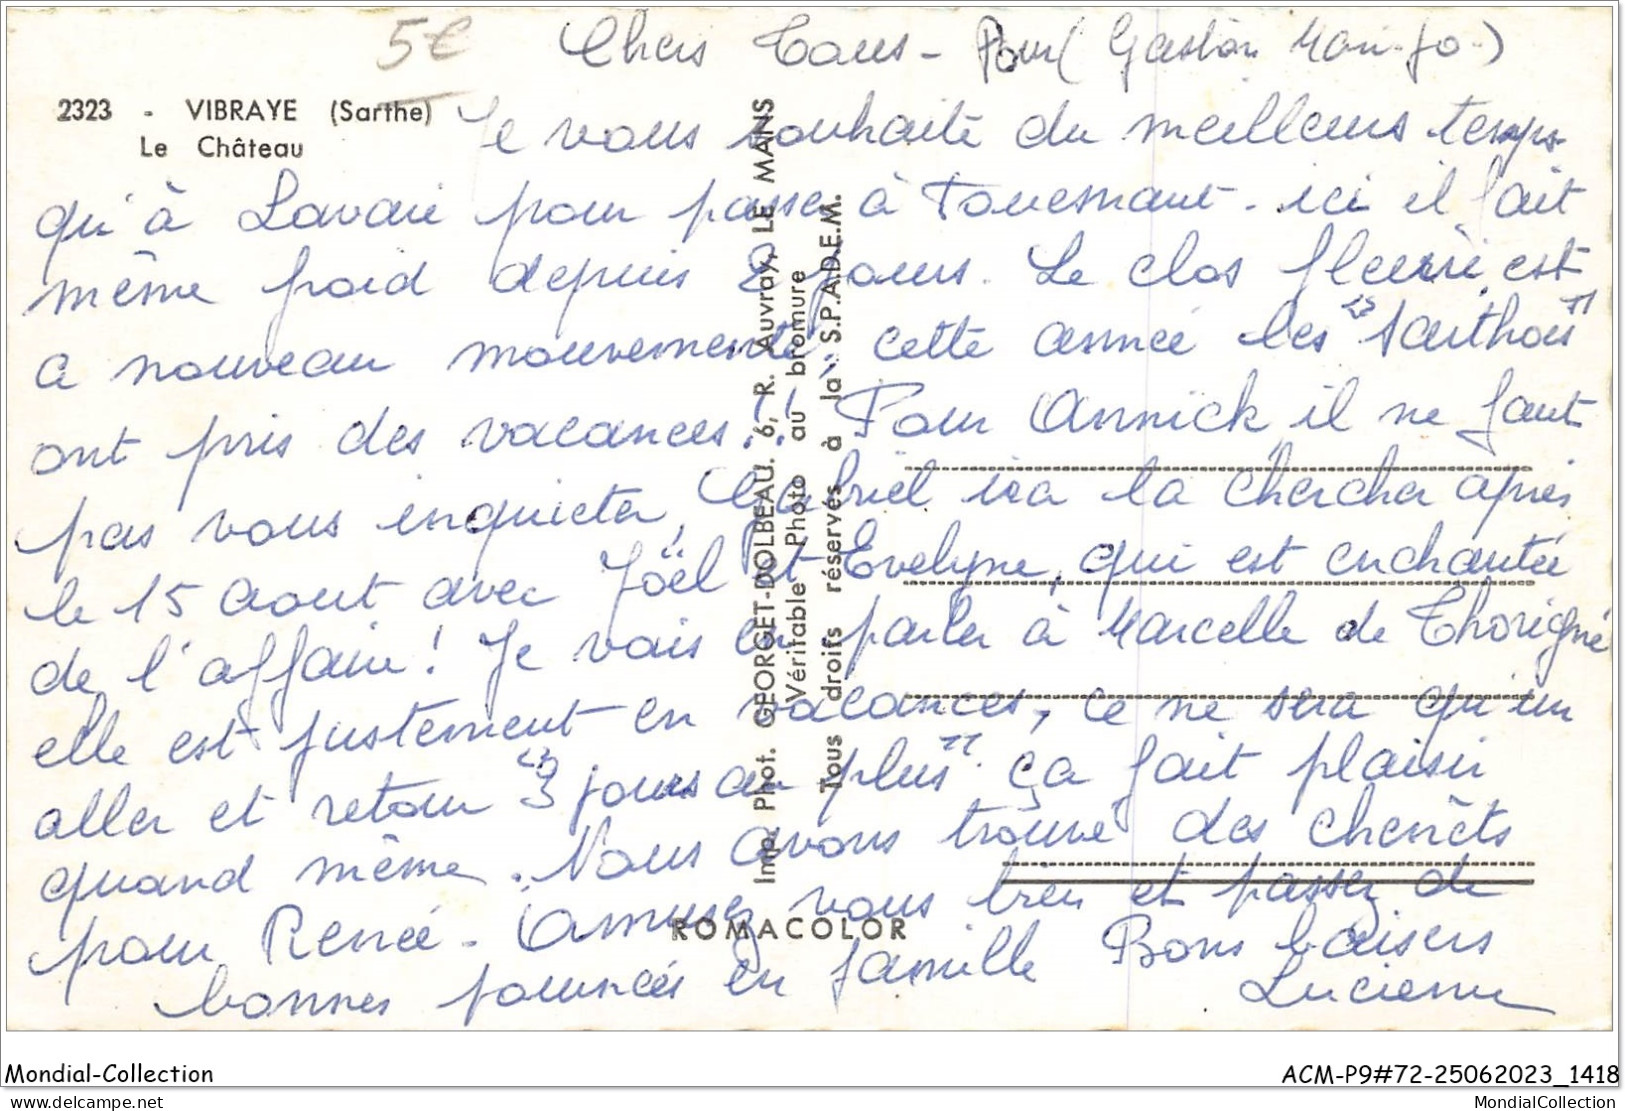 5€
Chers Tous - Pour (Gaston Mari-Jo-)
2323 - VIBRAYE (Sarthe)
Le Château
Je vous souhaite du meilleurs temps
qu'à Lavaré pour passer à Fouesnant - ici il fait
même froid depuis 2 jours. Le clos fleuri est
a nouveau mouvementé, cette année les "Sarthois"
ont pris des vacances!! Pour Annick il ne faut
pas vous inquieter, Gabriel ira la chercher après
le 15 aout avec Joël et Evelyne, qui est enchantée
de l'affaire! Je vais en parler à Marcelle de Thorigné
elle est justement en vacances, ce ne sera qu'un
aller et retour "3 jours au plus" ça fait plaisir
quand même. Nous avons trouvé des chenêts
pour Renée - Amusez vous bien et passez de
bonnes journées en famille Bons baisers
Lucienne
Imp. Phot. GEORGET-DOLBEAU. 6, R. Auvray, LE MANS
Véritable Photo au bromure
Tous droits réservés à la S.P.A.D.E.M.
ROMACOLOR
Mondial-Collection
ACM-P9#72-25062023_1418
delcampe.net
MondialCollection